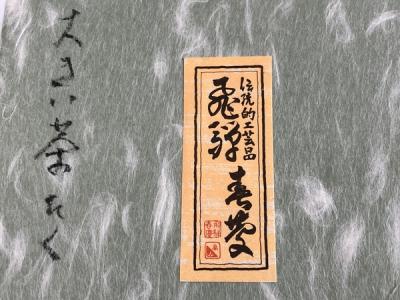 伝統的工芸品
飛騨春慶
大きい茶たく